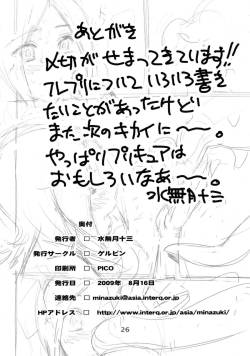 あとがき
〆切がせまってきています!!
フレプリについていろいろ書き
たいことがあったけど
また次のキカイに〜。
やっぱりプリキュアは
おもしろいなあ〜。
水無月十三
奥付
発行者 □ 水無月十三
発行サークル □ ケルビン
印刷所 □ PICO
発行日 □ 2009年 8月16日
連絡先 □ minazuki@asia.interq.or.jp
HPアドレス □ http://www.interq.or.jp/asia/minazuki/
26